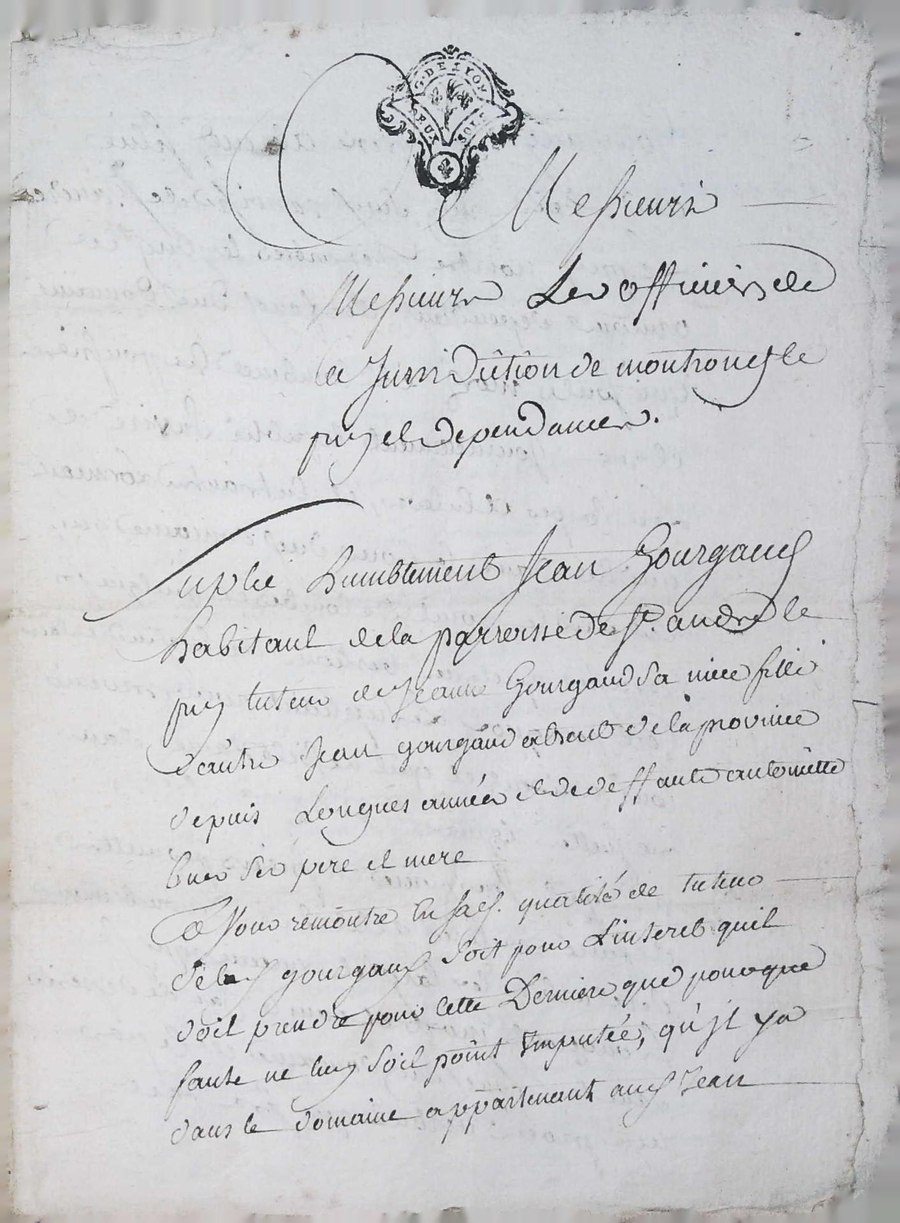 G. DE LYON
DEUX SOLS
Messieurs
Messieurs Les officiers de
la Jurisdiction de montrond le
puy et dependances.
Suplie humblement Jean Gourgaud
habitant de la parroisse de St. andré le
puy tuteur de Jeanne Gourgaud sa niece fille
d'autre Jean gourgaud absent de la province
depuis Longues années et de deffunte antoinette
ses pere et mere
Et vous remontre en sad. qualité de tuteur
de lad gourgaud soit pour L'interet quil
doit prendre pour cette Derniere que pour que
faute ne luy soit point Imputée, qu'jl ya
dans le domaine appartenant aud Jean